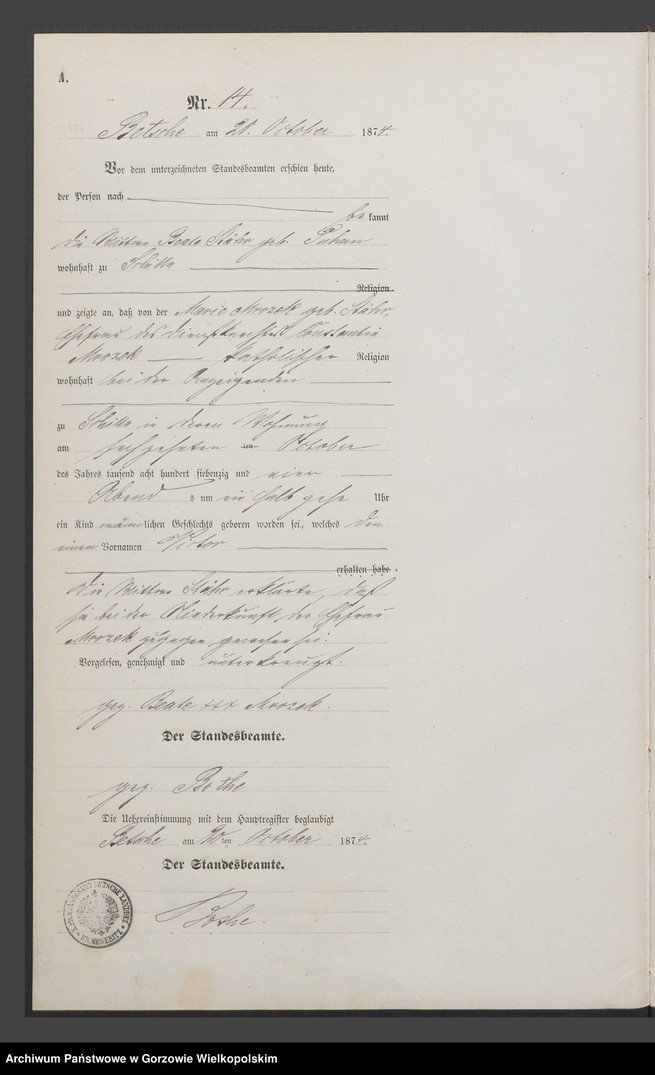 A.
Nr. 14.
Betsche am 20. October 1874.
Vor dem unterzeichneten Standesbeamten erschien heute,
der Person nach
be kannt
die Wittwe Beate Stähr geb.
wohnhaft zu Schilln
Religion
und zeigte an, daß von der Marie Mrozek geb. Stähr,
Ehefrau des Dienstknechtes Constantin
Mrozek katholischer Religion
wohnhaft bei der Anzeigenden
zu Schilln in deren Wohnung
am sechszehnten ten October
des Jahres tausend acht hundert siebenzig und vier
Abend s um ein halb zehn Uhr
ein Kind männlichen Geschlechts geboren worden sei, welches den
einen Vornamen Victor
erhalten habe.
Die Wittwe Stähr erklärte, daß
sie bei der Niederkunft der Ehefrau
Mrozek zugegen gewesen sei.
Vorgelesen, genehmigt und unterkreuzt.
gez. Beate +++ Mrozek.
Der Standesbeamte.
gez. Bothe
Die Uebereinstimmung mit dem Hauptregister beglaubigt
Betsche am 20 ten October 1874.
Der Standesbeamte.
Bothe.
BETSCHE LANDBEZ.
KR. MESERITZ
Archiwum Państwowe w Gorzowie Wielkopolskim